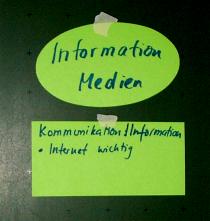 Information
Medien
Kommunikation/Information
• Internet wichtig